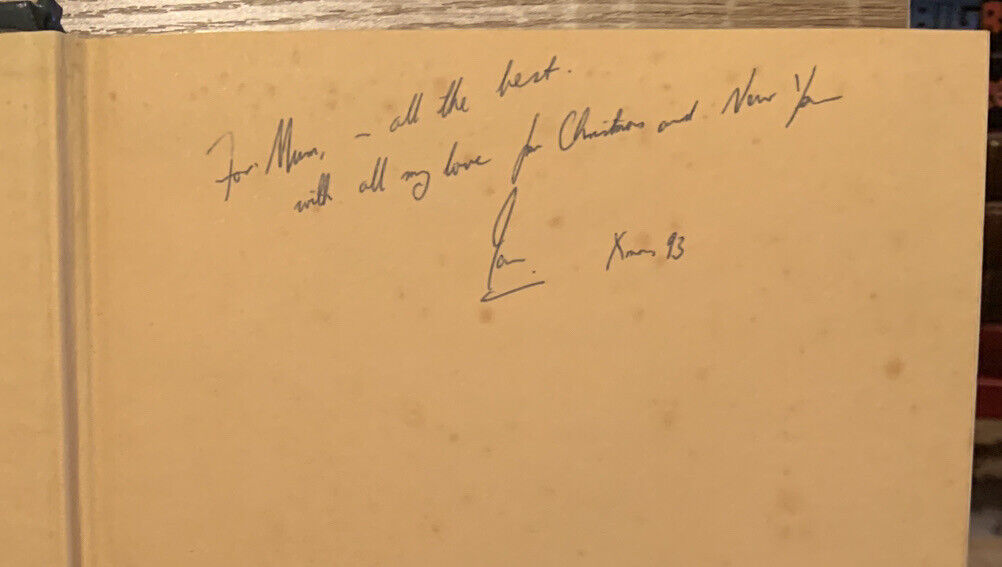 For Mum, – all the best.
with all my love for Christmas and New Year
Xmas 93